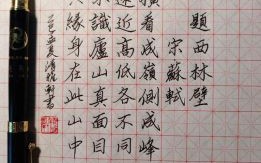 題西林壁
宋蘇軾
橫看成嶺側成峰
遠近高低各不同
不識廬山真面目
只緣身在此山中